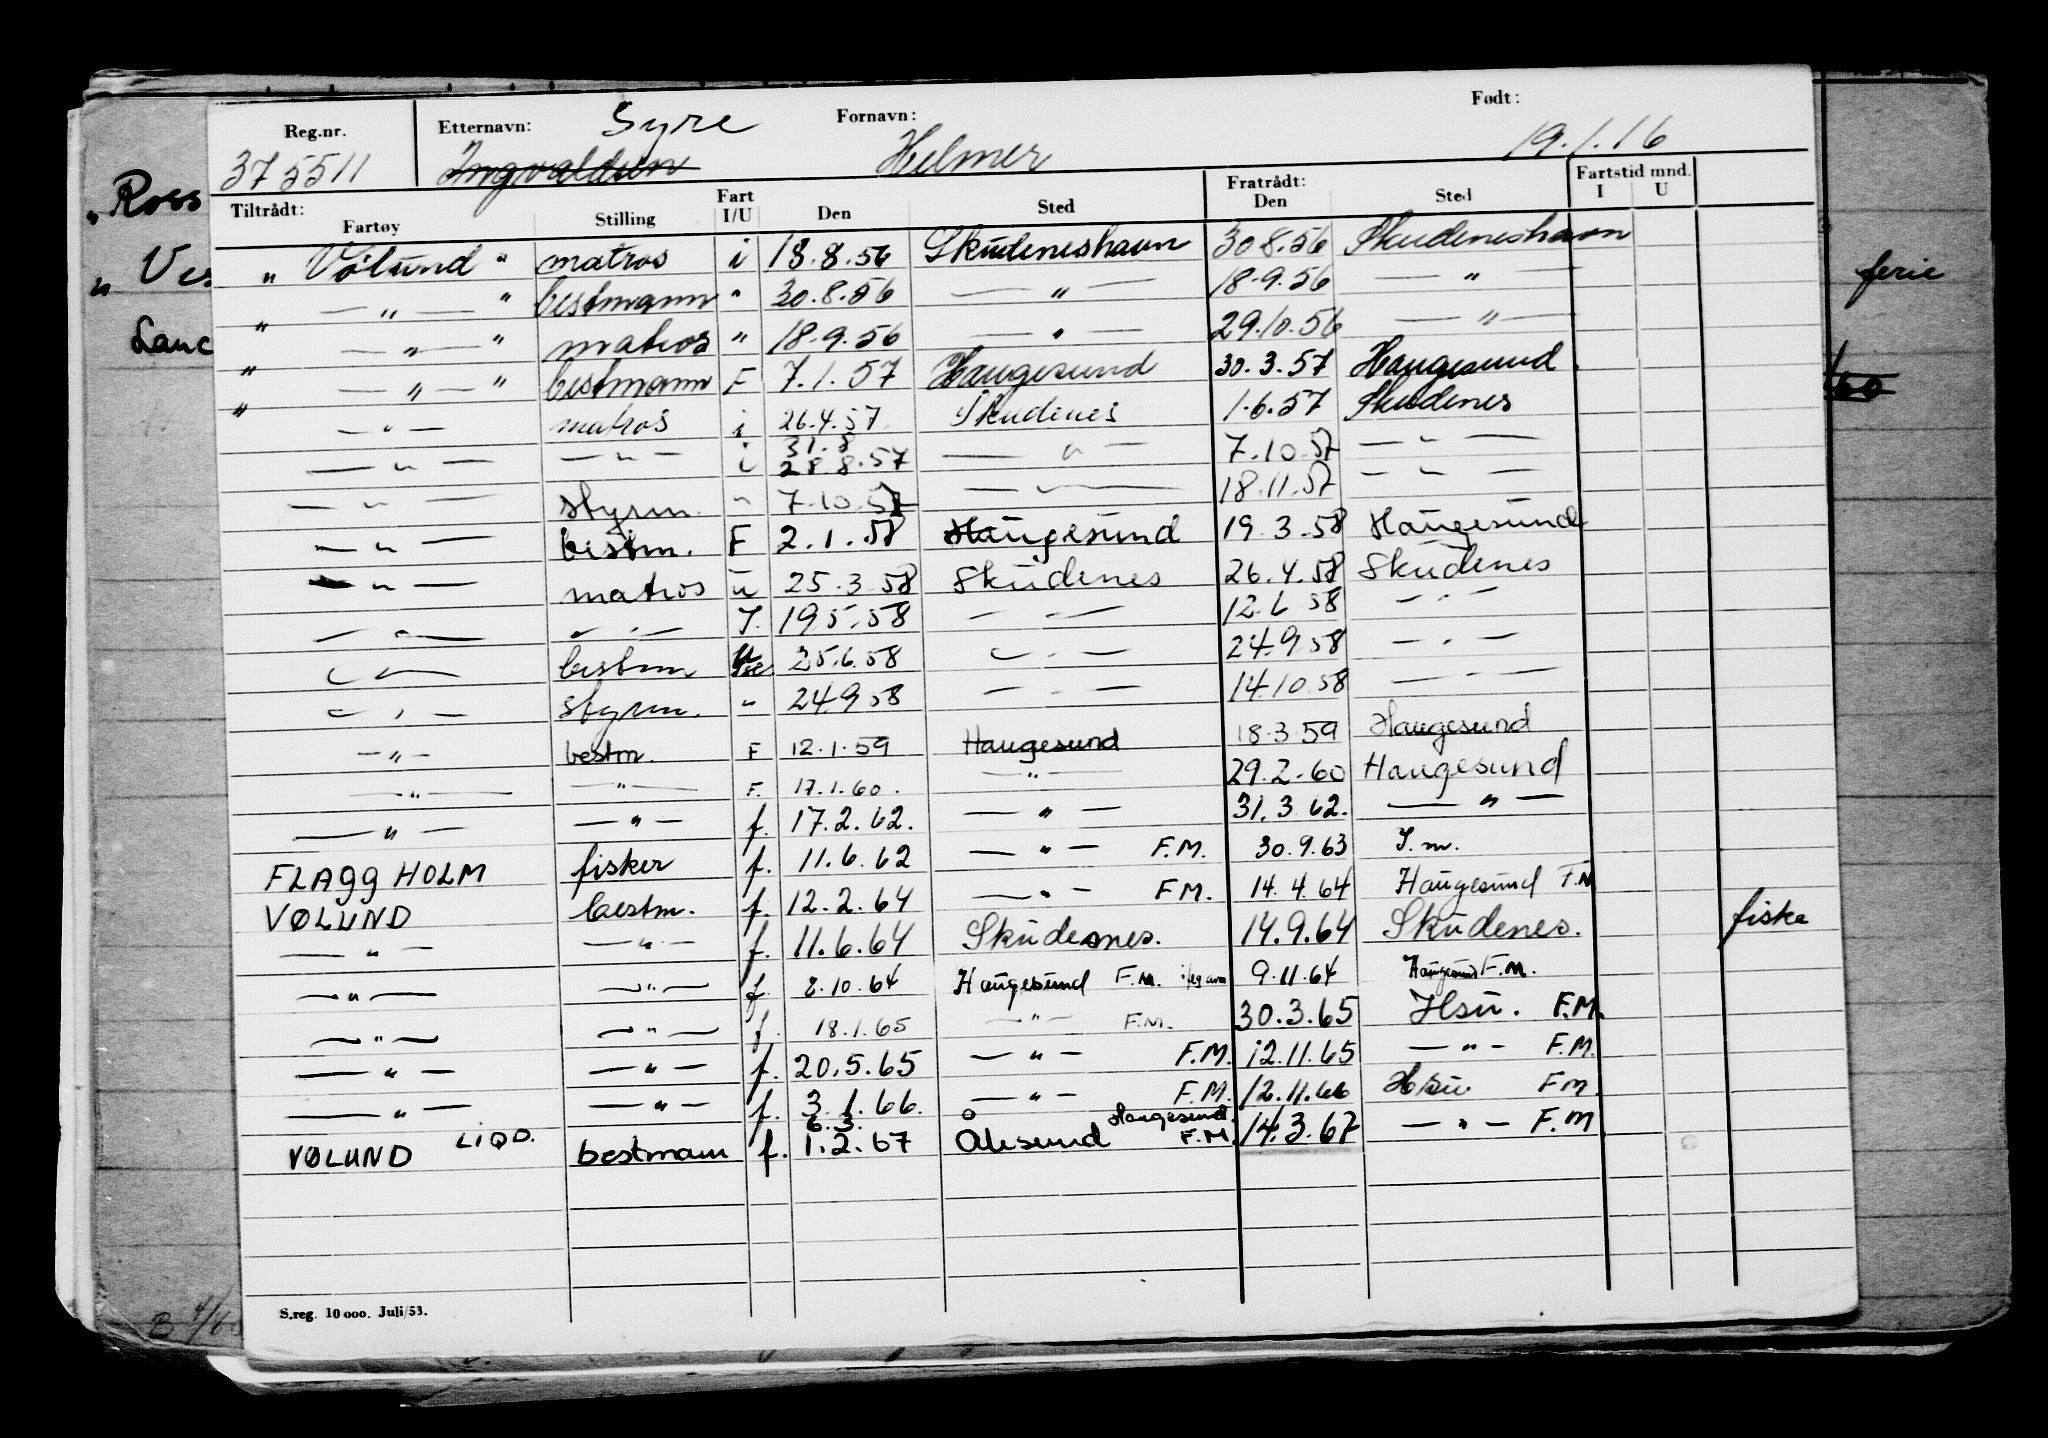 Reg.nr. Etternavn: Syre Fornavn: Født:
375511 Ingvaldsen Helmer 19.1.16
Tiltrådt: Fartøy Stilling Fart I/U Den Sted Fratrådt: Den Sted Fartstid mnd. I U
" Völund " matros i 18.8.56 Skudeneshavn 30.8.56 Skudeneshavn
" — " — " bestmann " 30.8.56 — " — 18.9.56 — " —
" — " — " matros " 18.9.56 — " — 29.10.56 — " —
" — " — " bestmann F 7.1.57 Haugesund 30.3.57 Haugesund
— " — matros i 26.4.57 Skudenes 1.6.57 Skudenes
— " — — " — i 31.8 28.8.57 — " — 7.10.57 — " —
— " — styrm. " 7.10.57 — " — 18.11.57 — " —
— " — bestm. F 2.1.58 Haugesund 19.3.58 Haugesund
— " — matros u 25.3.58 Skudenes 26.4.58 Skudenes
— " — — " — I. 19.5.58 — " — 12.6.58 — " —
— " — bestm 25.6.58 — " — 24.9.58 — " —
— " — styrm. " 24.9.58 — " — 14.10.58 — " —
— " — bestm. F 12.1.59 Haugesund 18.3.59 Haugesund
— " — — " — F. 17.1.60. — " — 29.2.60 Haugesund
— " — — " — f. 17.2.62. — " — 31.3.62. — " —
FLAGGHOLM fisker f. 11.6.62 — " — F.M. 30.9.63 I.m.
VØLUND bestm. f. 12.2.64 — " — F.M. 14.4.64 Haugesund F.M
— " — — " — f. 11.6.64 Skudesnes. 14.9.64 Skudenes. fiske
— " — — " — f. 2.10.64 Haugesund F.M. 9.11.64 Haugesund F.M.
— " — — " — f. 18.1.65 — " — F.M. 30.3.65 Hsu. F.M.
— " — — " — f. 20.5.65 — " — F.M. 12.11.65 — " — F.M.
— " — — " — f. 3.1.66. — " — F.M. 12.11.66 Hsu F.M.
VØLUND LIQD. bestmann f. 6.3. 1.2.67 Ålesund Haugesund. F.M. 14.3.67 — " — F.M
S.reg. 10 000. Juli/53.
" Ross
" Ves
Lanc
ferie